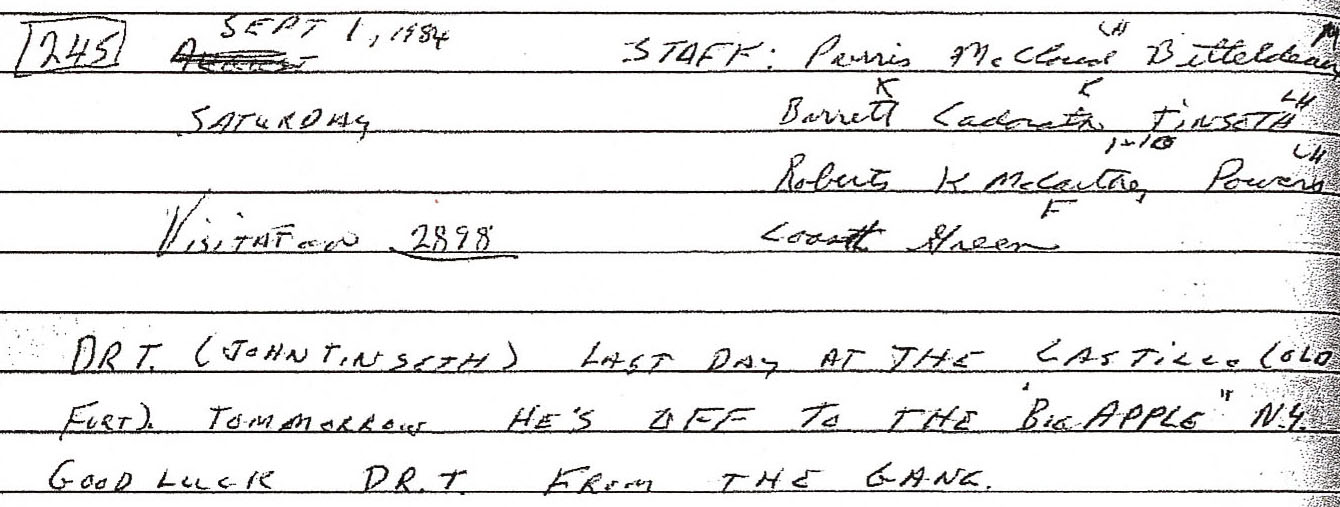 245 SEPT 1, 1984 STAFF: Parris McCloud LH Bitteldeau
SATURDAY Barrett K Cadorath K TINSETH LH
Roberts K McCartney Powers LH
VISITATION 2898 Green F
DR T. (JOHN TINSETH) LAST DAY AT THE CASTILLO (OLD
FORT). TOMMORROW HE'S OFF TO THE "BIG APPLE" N.Y.
GOOD LUCK DR. T. FROM THE GANG.